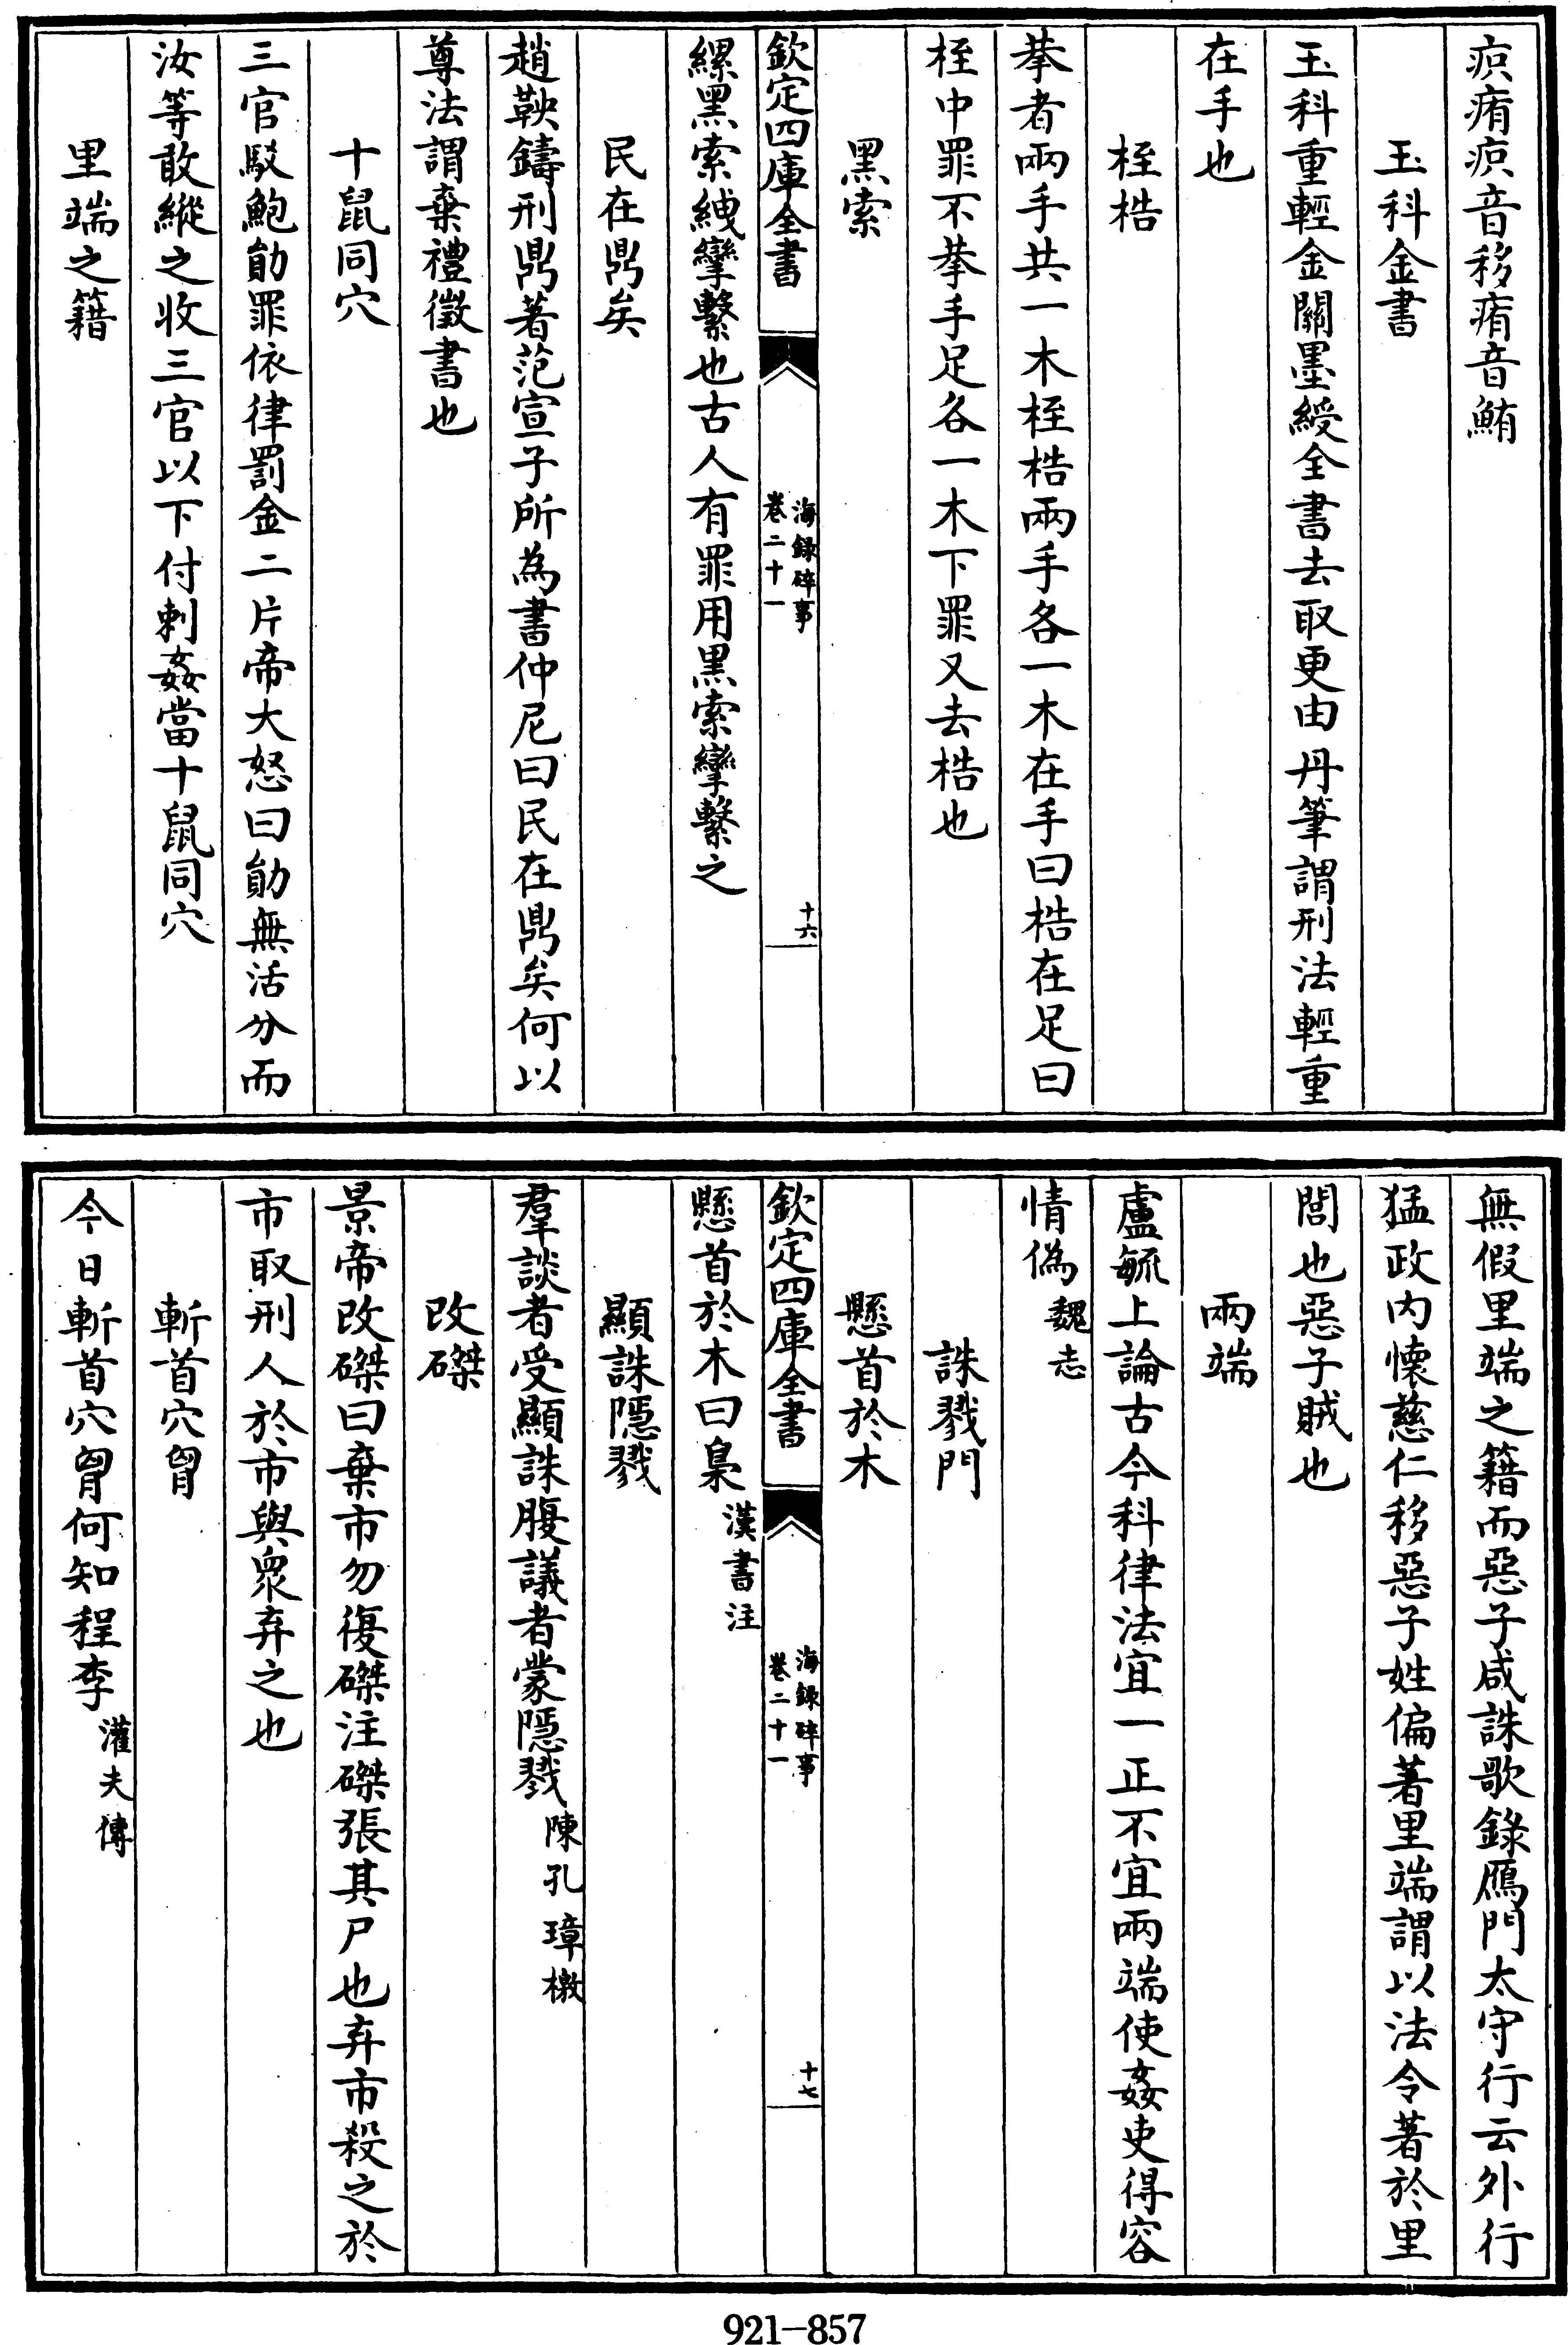 疻痏疻音移痏音鮪
玉科金書
玉科重輕金關墨綬全書去取更由丹筆謂刑法輕重
在手也
桎梏
拲者兩手共一木桎梏兩手各一木在手曰梏在足曰
桎中罪不拲手足各一木下罪又去梏也
黑索
欽定四庫全書
海録碎事
卷二十一
十六
縲黑索絏攣繫也古人有罪用黑索攣繫之
民在鼎矣
趙鞅鑄刑鼎著范宣子所為書仲尼曰民在鼎矣何以
尊法謂棄禮徵書也
十鼠同穴
三官駮鮑勛罪依律罰金二片帝大怒曰勛無活分而
汝等敢縱之收三官以下付刺姦當十鼠同穴
里端之籍
無假里端之籍而惡子咸誅歌錄鴈門太守行云外行
猛政内懷慈仁移惡子姓偏著里端謂以法令著於里
閭也惡子賊也
兩端
盧毓上論古今科律法宜一正不宜兩端使姦吏得容
情偽魏志
誅戮門
懸首於木
欽定四庫全書
海録碎事
卷二十一
十七
懸首於木曰梟漢書注
顯誅隱戮
羣談者受顯誅腹議者蒙隱戮陳孔璋檄
改磔
景帝改磔曰棄市勿復磔注磔張其尸也弃市殺之於
市取刑人於市與衆弃之也
斬首穴胷
今日斬首穴胷何知程李灌夫傳
921-857